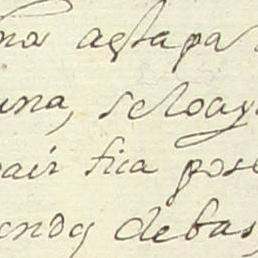 na aesta pa
una, se loay
pair fica pos
endo debas